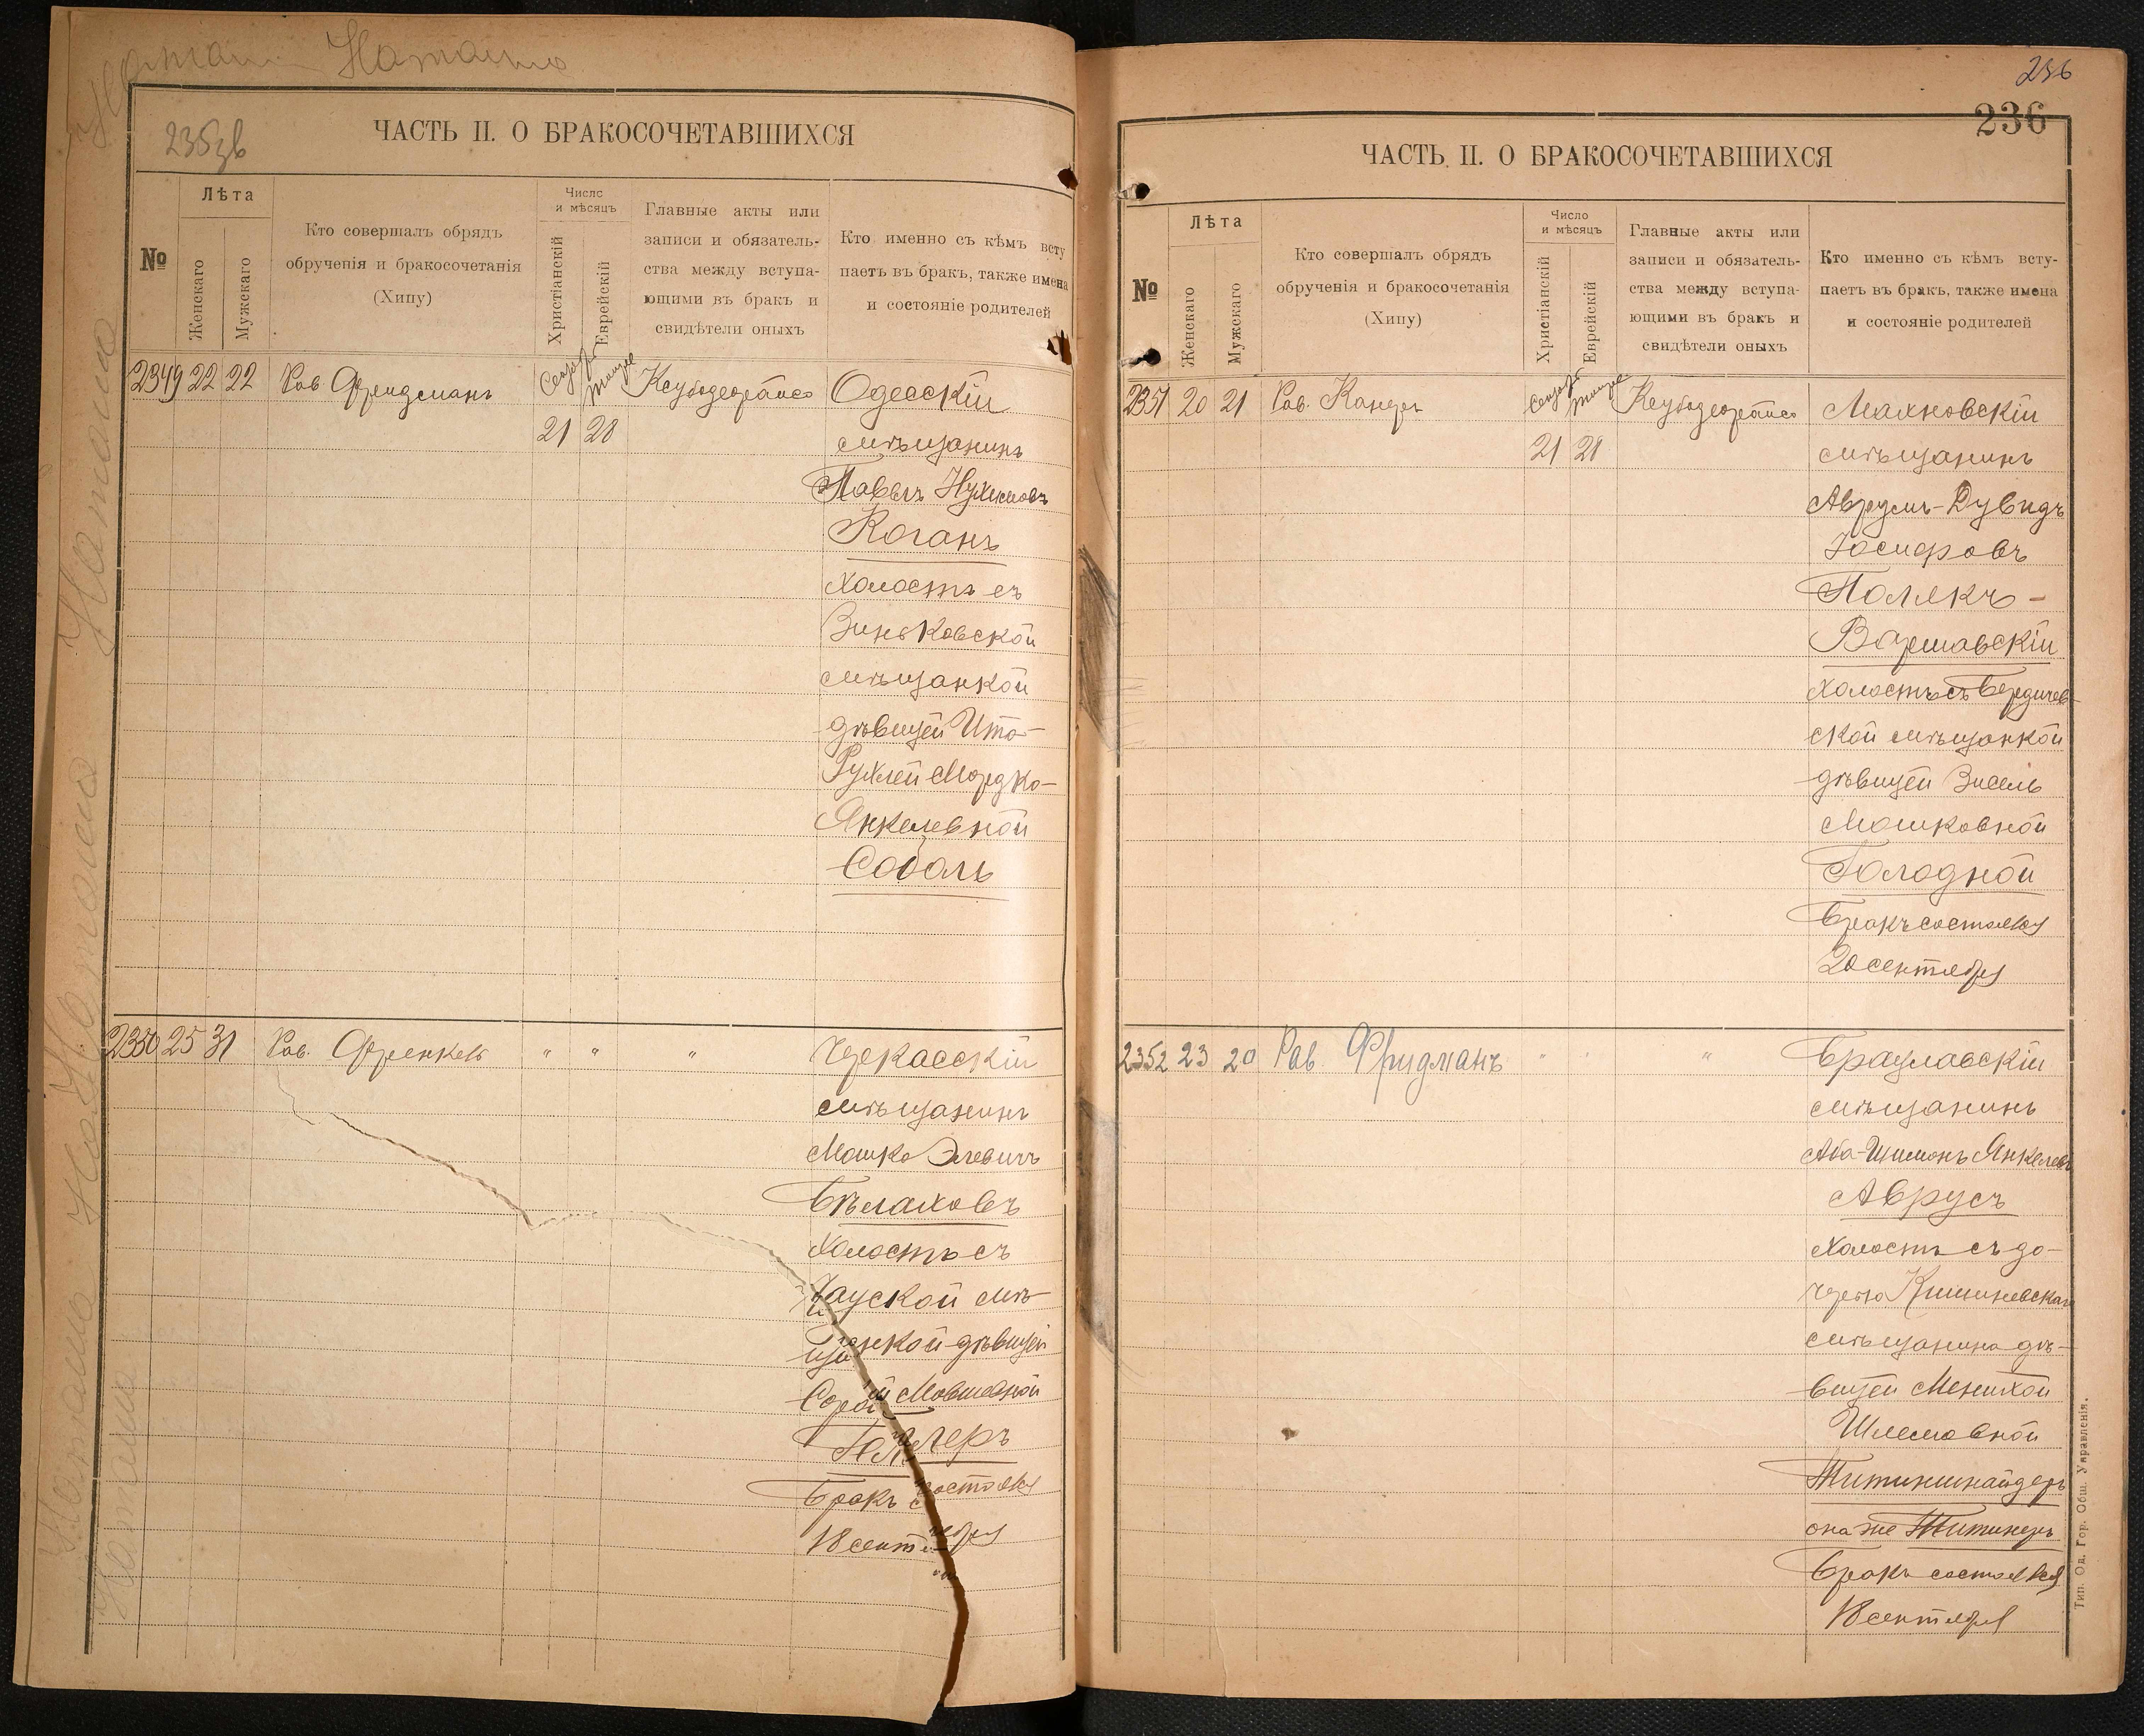 Наташа
235зв
ЧАСТЬ II. О БРАКОСОЧЕТАВШИХСЯ
№
Лѣта
Женскаго
Мужскаго
Кто совершалъ обрядъ
обрученія и бракосочетанія
(Хипу)
Число
и мѣсяцъ
Христіанскій
Еврейскій
Главные акты или
записи и обязатель-
ства между вступа-
ющими въ бракъ и
свидѣтели оныхъ
Кто именно съ кѣмъ всту
паетъ въ бракъ, также имена
и состояніе родителей
2349 22 22 Рав Фридманъ
21 20
Одесскій
мѣщанинъ
Павелъ Нухимовъ
Коганъ
холостъ съ
Зиньковской
мѣщанкой
дѣвицей Ита-
Рухлей Мордко-
Янкелевной
Соболь
2350 25 31 Рав. Френкель " " "
Черкасскій
мѣщанинъ
Мошко Элевичъ
Бѣлаховъ
холостъ съ
Чауской мѣ-
щанкой дѣвицей
Сорой Мовшевной
Геллеръ
Бракъ состоялся
18 сентября
Наташа
Наташа
Наташа
Наташа
Наташа
236
236
ЧАСТЬ II. О БРАКОСОЧЕТАВШИХСЯ
№
Лѣта
Женскаго
Мужскаго
Кто совершалъ обрядъ
обрученія и бракосочетанія
(Хипу)
Число
и мѣсяцъ
Христіанскій
Еврейскій
Главные акты или
записи и обязатель-
ства между вступа-
ющими въ бракъ и
свидѣтели оныхъ
Кто именно съ кѣмъ всту-
паетъ въ бракъ, также имена
и состояніе родителей
2351 20 21 Рав. Канеръ
21 20
Махновскій
мѣщанинъ
Аврумъ-Дувидъ
Іосифовъ
Полякъ-
Варшавскій
холостъ съ Бердичев-
ской мѣщанкой
дѣвицей Зисель
Мошковной
Голодной
Бракъ состоялся
20 сентября
2352 23 20 Рав. Фридманъ " " "
Брацлавскій
мѣщанинъ
Аба-Шимонъ Янкелевъ
Аврусъ
холостъ съ до-
черью Кишиневскаго
мѣщанина дѣ-
вицей Менихой
Шлемовной
Титиншнайдеръ
она же Титинеръ
Бракъ состоялся
18 сентября
Тип. Од. Гор. Общ. Управленія.